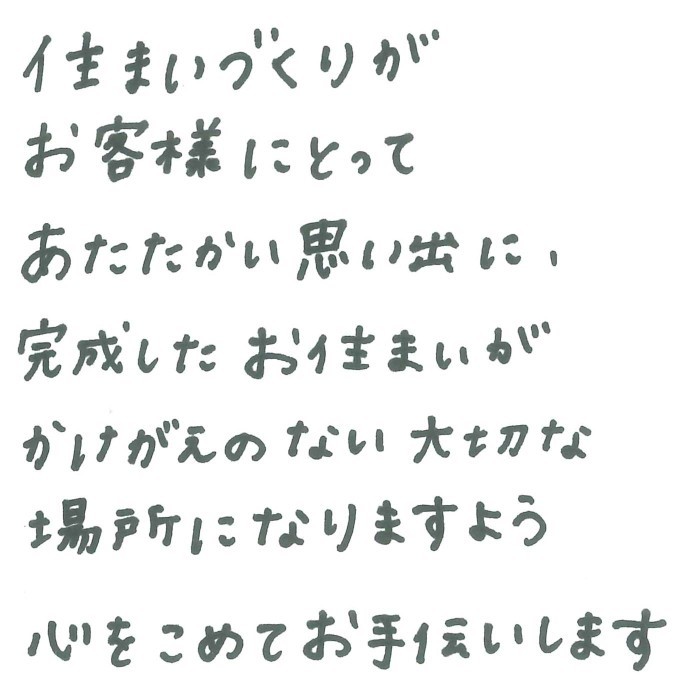 住まいづくりが
お客様にとって
あたたかい思い出に、
完成したお住まいが
かけがえのない大切な
場所になりますよう
心をこめてお手伝いします